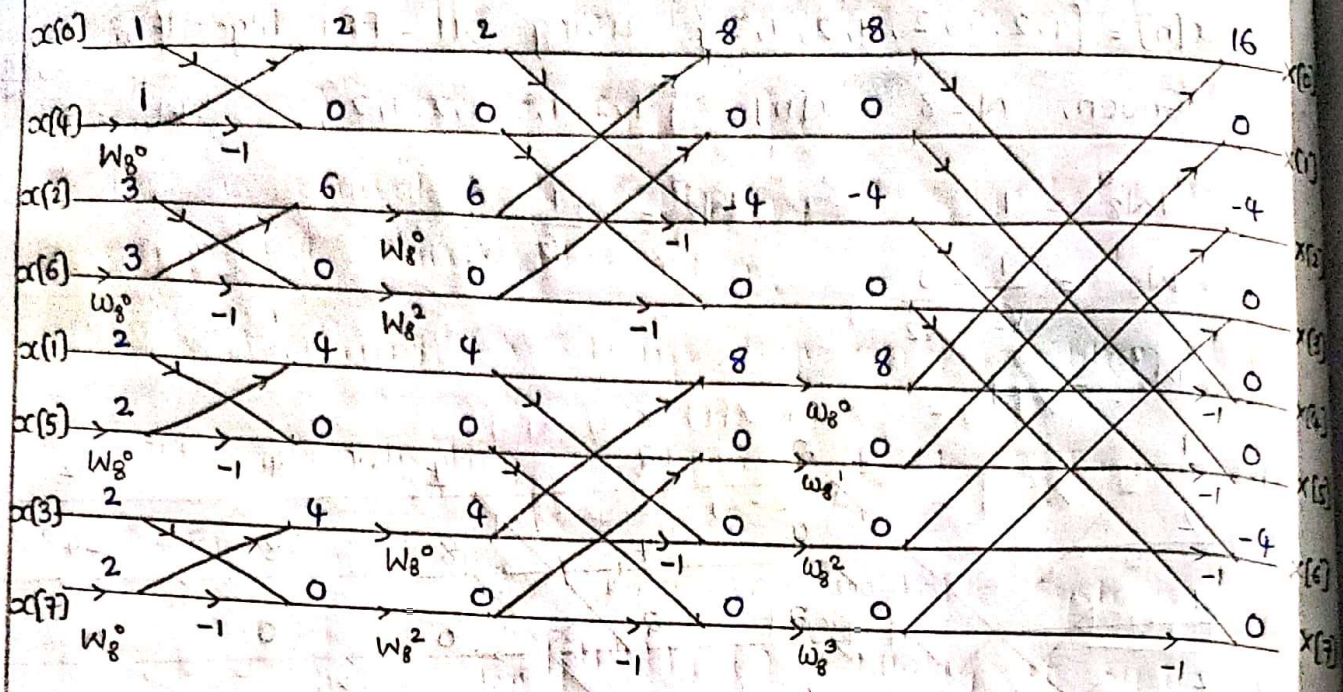 x(0) 1 2 2 8 8 16 X[0]
x(4) 1 0 0 0 0 0 X[1]
W₈⁰ -1
x(2) 3 6 6 -4 -4 -4 X[2]
W₈⁰ -1
x(6) 3 0 0 0 0 0 X[3]
W₈⁰ -1 W₈² -1
x(1) 2 4 4 8 8 0 X[4]
W₈⁰ -1
x(5) 2 0 0 0 0 0 X[5]
W₈⁰ -1 W₈¹ -1
x(3) 2 4 4 0 0 -4 X[6]
W₈⁰ -1 W₈² -1
x(7) 2 0 0 0 0 0 X[7]
W₈⁰ -1 W₈² -1 W₈³ -1